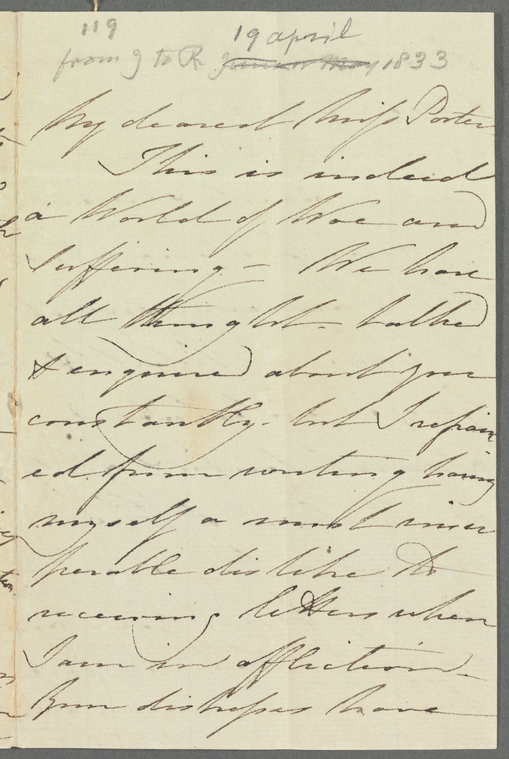 119
19 april
from J to R June or May 1833
My dearest Miss Porter
This is indeed
a World of Woe and
Suffering – We have
all thought – talked
& enquired about you
constantly – but I refrain
ed from writing having
myself a most insu
perable dislike to
receiving letters when
I am in affliction –
Your distresses have